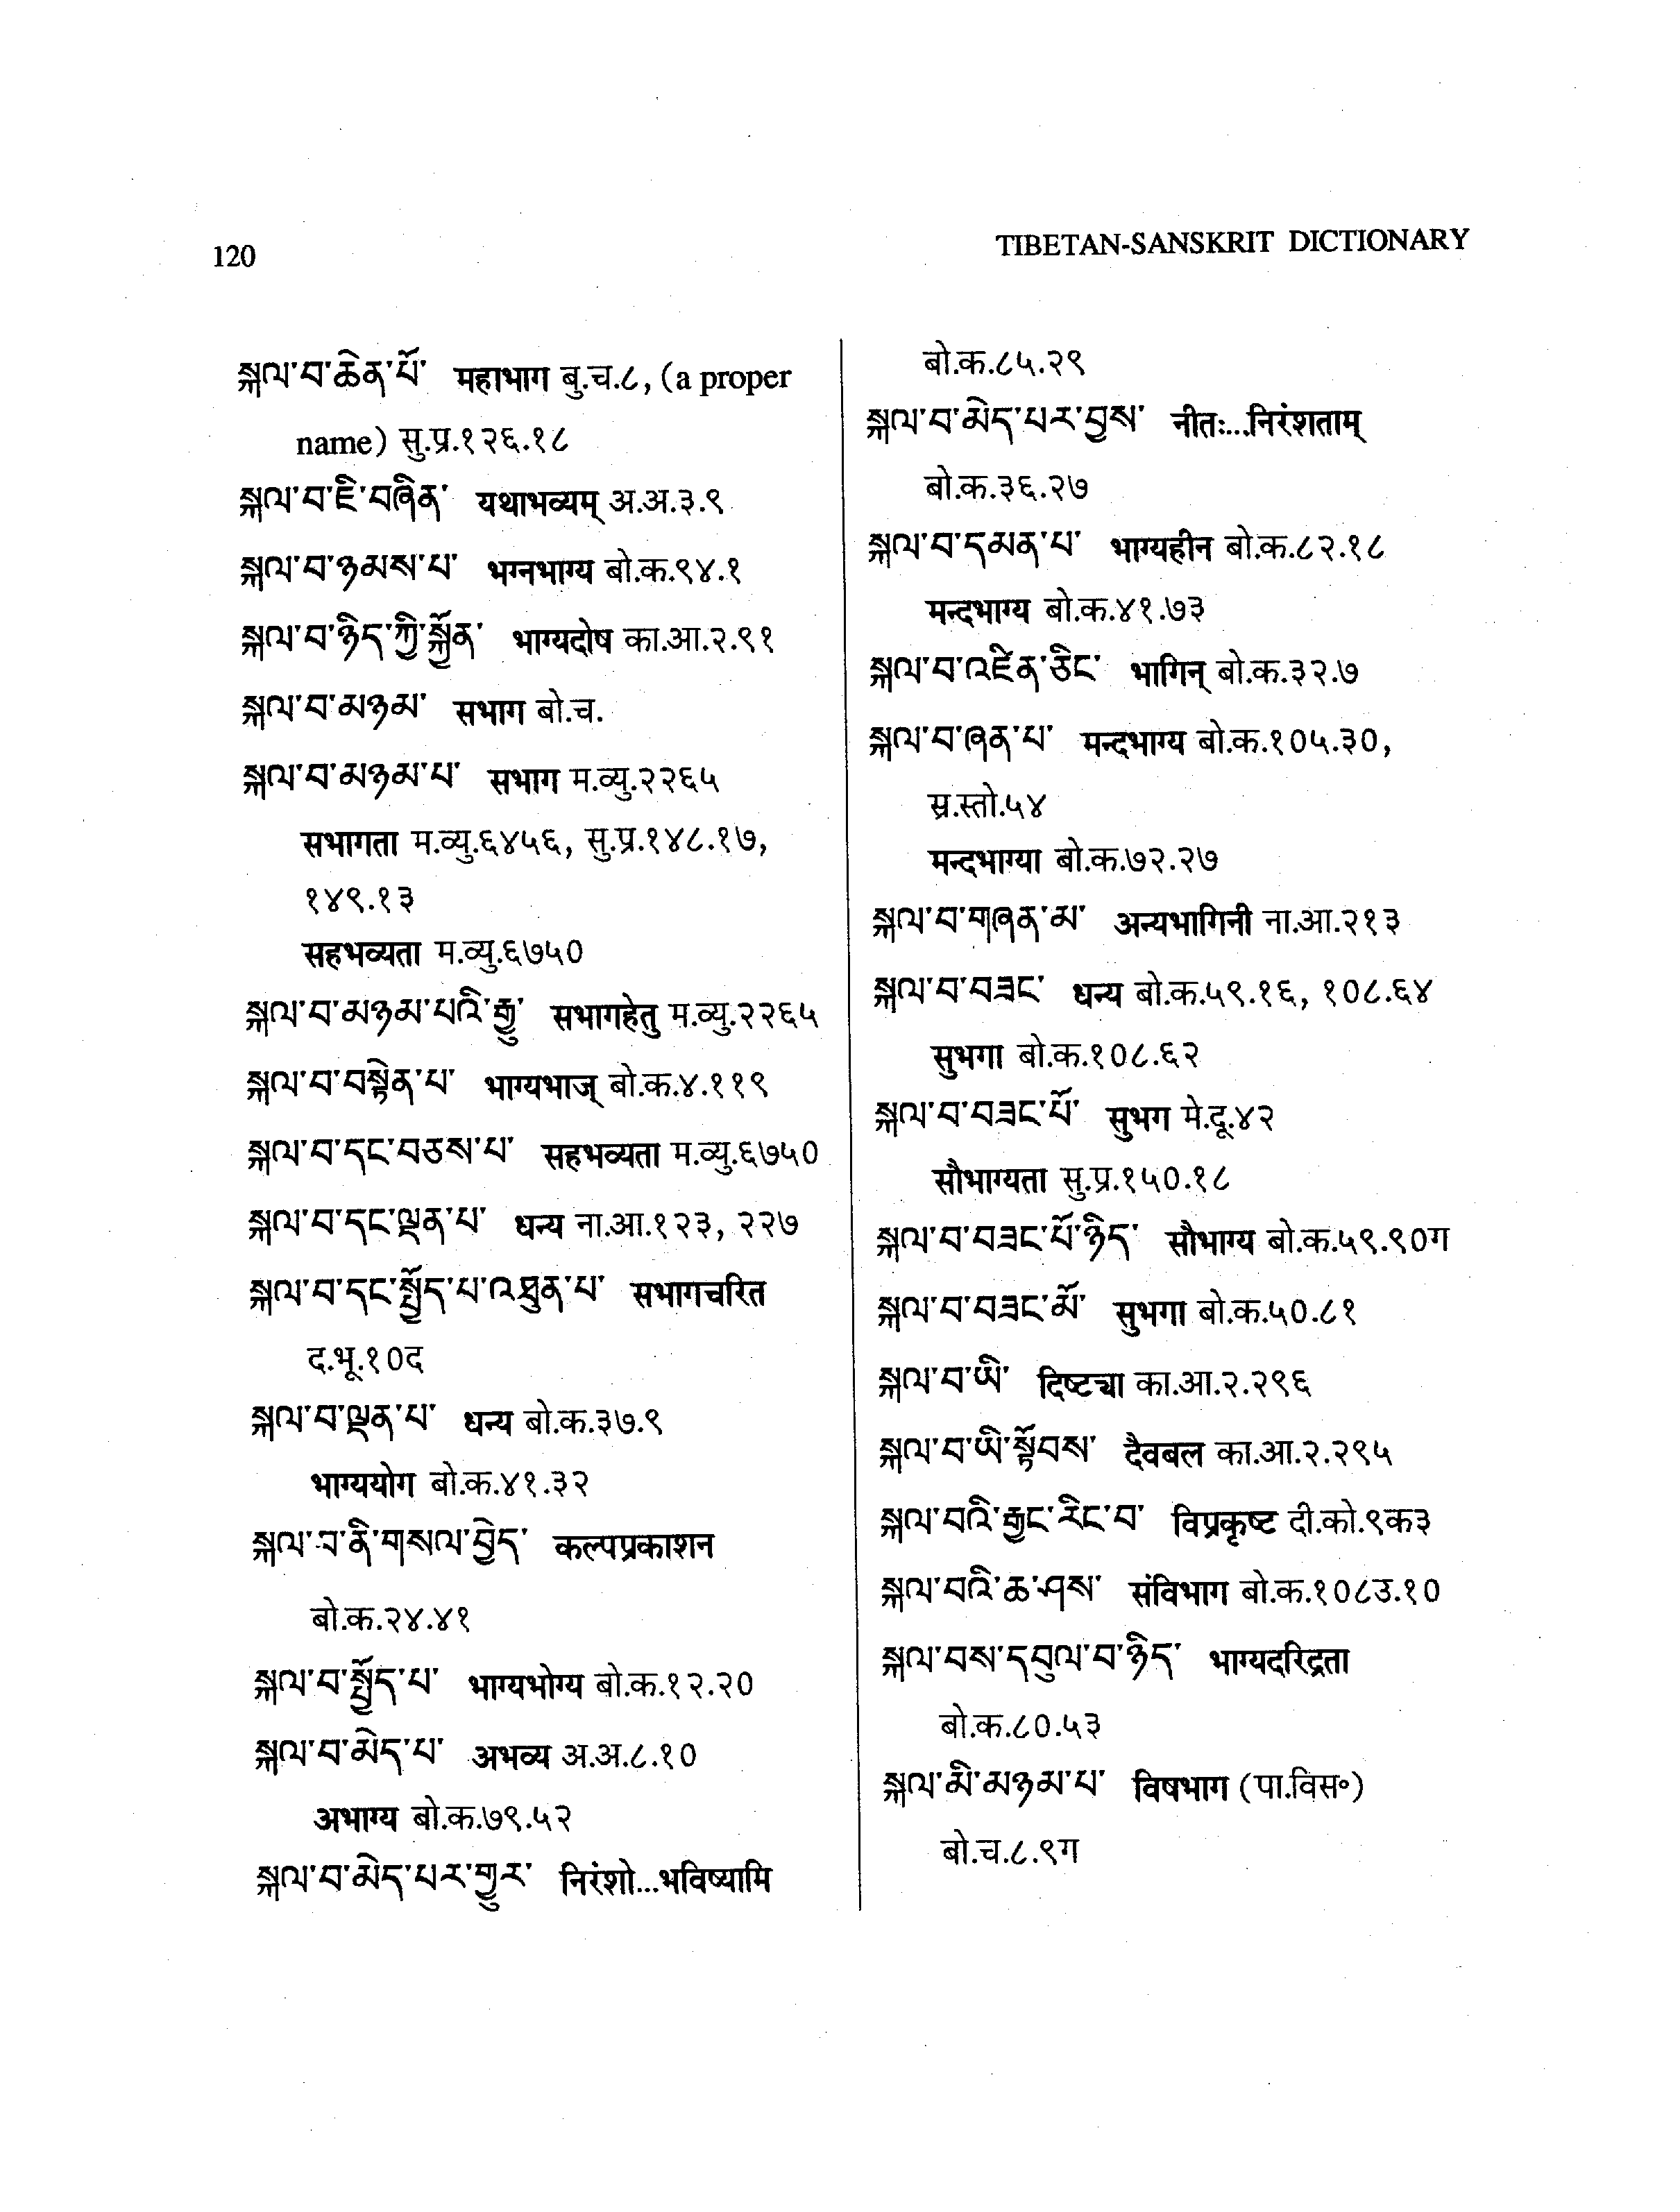 120
TIBETAN-SANSKRIT DICTIONARY
སྐལ་བ་ཆེན་པོ་ महाभाग बु.च.८, (a proper
name) सु.प्र.१२६.१८
སྐལ་བ་ཇི་བཞིན་ यथाभव्यम् अ.अ.३.९
སྐལ་བ་ཉམས་པ་ भग्नभाग्य बो.क.९४.१
སྐལ་བ་ཉིད་ཀྱི་སྐྱོན་ भाग्यदोष का.आ.२.९१
སྐལ་བ་མཉམ་ सभाग बो.च.
སྐལ་བ་མཉམ་པ་ सभाग म.व्यु.२२६५
सभागता म.व्यु.६४५६, सु.प्र.१४८.१७,
१४९.१३
सहभव्यता म.व्यु.६७५०
སྐལ་བ་མཉམ་པའི་རྒྱུ་ सभागहेतु म.व्यु.२२६५
སྐལ་བ་བསྟེན་པ་ भाग्यभाज् बो.क.४.११९
སྐལ་བ་དང་བཅས་པ་ सहभव्यता म.व्यु.६७५०
སྐལ་བ་དང་ལྡན་པ་ धन्य ना.आ.१२३, २२७
སྐལ་བ་དང་སྤྱོད་པ་འཐུན་པ་ सभागचरित
द.भू.१०द
སྐལ་བ་ལྡན་པ་ धन्य बो.क.३७.९
भाग्ययोग बो.क.४१.३२
སྐལ་བ་ནི་གསལ་བྱེད་ कल्पप्रकाशन
बो.क.२४.४१
སྐལ་བ་སྤྱོད་པ་ भाग्यभोग्य बो.क.१२.२०
སྐལ་བ་མེད་པ་ अभव्य अ.अ.८.१०
अभाग्य बो.क.७९.५२
སྐལ་བ་མེད་པར་གྱུར་ निरंशो...भविष्यामि
बो.क.८५.२९
སྐལ་བ་མེད་པར་བྱས་ नीतः...निरंशताम्
बो.क.३६.२७
སྐལ་བ་དམན་པ་ भाग्यहीन बो.क.८२.१८
मन्दभाग्य बो.क.४१.७३
སྐལ་བ་འཛིན་ཅིང་ भागिन् बो.क.३२.७
སྐལ་བ་ཞན་པ་ मन्दभाग्य बो.क.१०५.३०,
स्र.स्तो.५४
मन्दभाग्या बो.क.७२.२७
སྐལ་བ་གཞན་མ་ अन्यभागिनी ना.आ.२१३
སྐལ་བ་བཟང་ धन्य बो.क.५९.१६, १०८.६४
सुभगा बो.क.१०८.६२
སྐལ་བ་བཟང་པོ་ सुभग मे.दू.४२
सौभाग्यता सु.प्र.१५०.१८
སྐལ་བ་བཟང་པོ་ཉིད་ सौभाग्य बो.क.५९.९०ग
སྐལ་བ་བཟང་མོ་ सुभगा बो.क.५०.८१
སྐལ་བ་ཡི་ दिष्ट्या का.आ.२.२९६
སྐལ་བ་ཡི་སྟོབས་ दैवबल का.आ.२.२९५
སྐལ་བའི་རྒྱང་རིང་བ་ विप्रकृष्ट दी.को.९क३
སྐལ་བའི་ཆ་ཤས་ संविभाग बो.क.१०८उ.१०
སྐལ་བས་དབུལ་བ་ཉིད་ भाग्यदरिद्रता
बो.क.८०.५३
སྐལ་མི་མཉམ་པ་ विषभाग (पा.विस॰)
बो.च.८.९ग